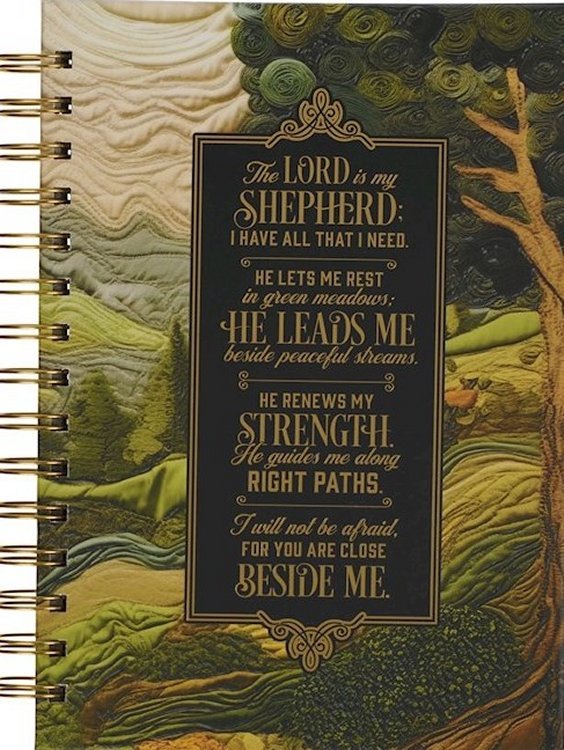 The LORD is my
SHEPHERD;
I HAVE ALL THAT I NEED.
HE LETS ME REST
in green meadows;
HE LEADS ME
beside peaceful streams.
HE RENEWS MY
STRENGTH.
He guides me along
RIGHT PATHS.
I will not be afraid,
FOR YOU ARE CLOSE
BESIDE ME.